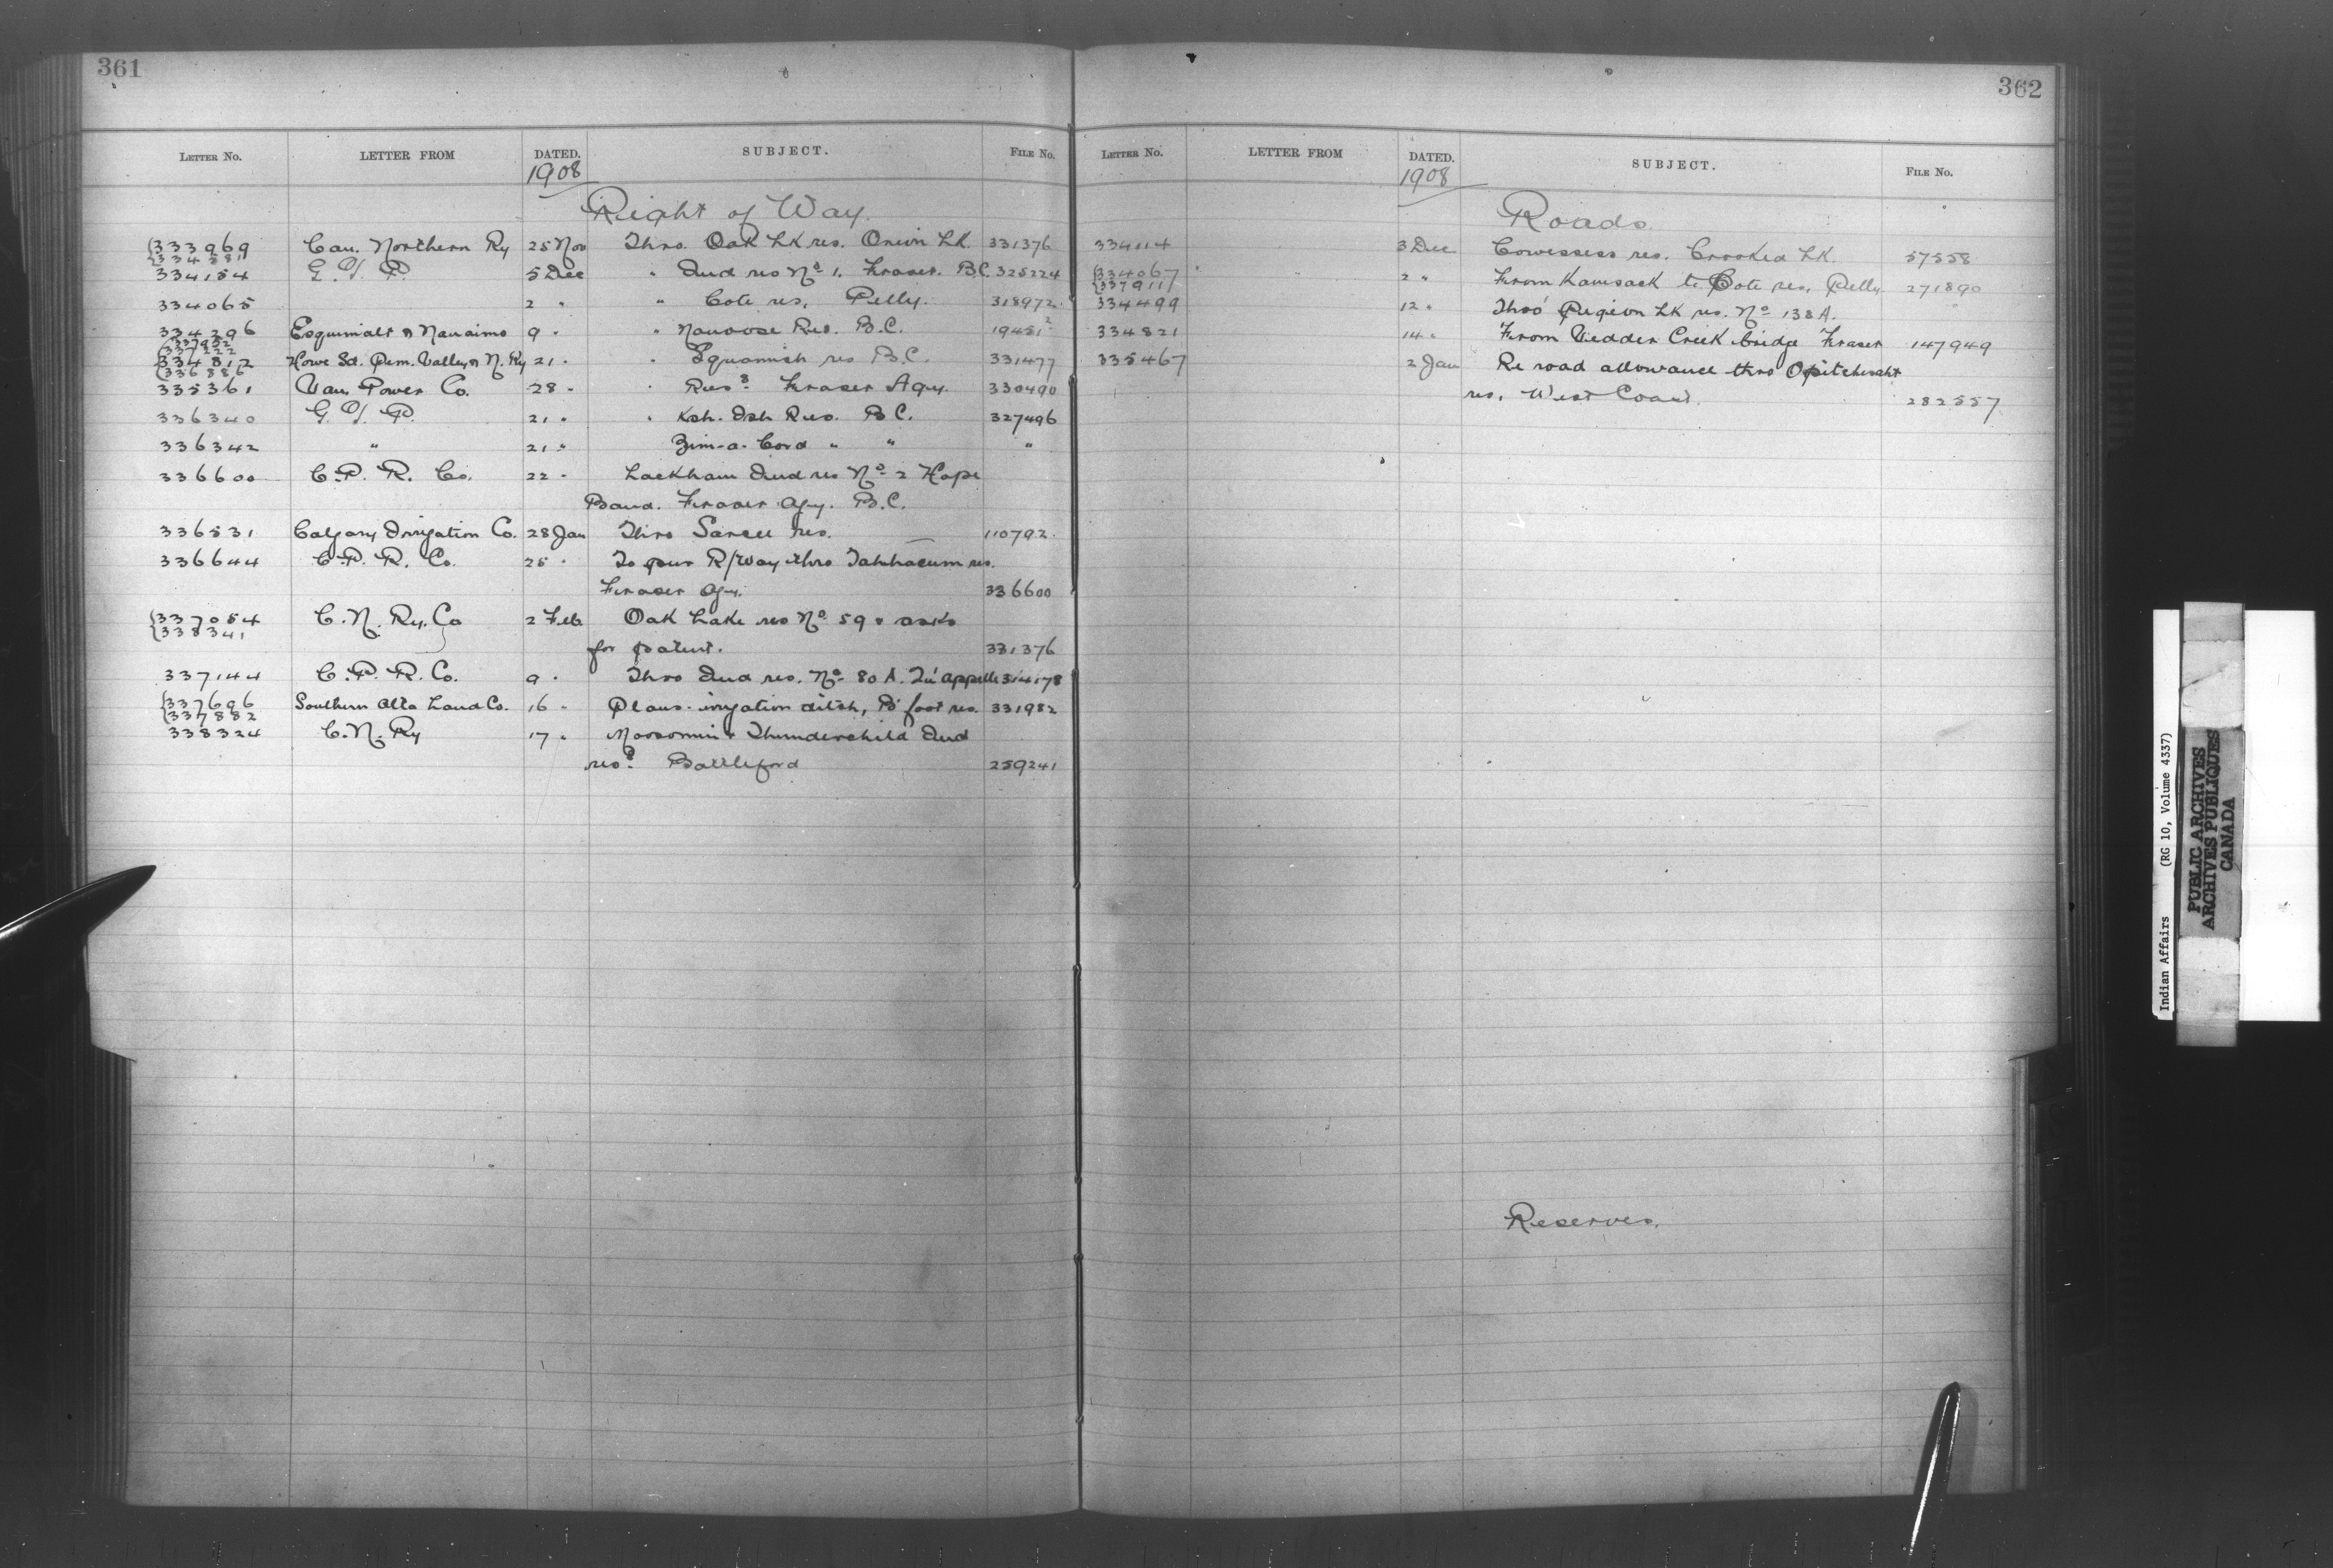 361
LETTER NO. LETTER FROM DATED. SUBJECT. FILE NO.
1908
Right of Way.
333969 Can. Northern Ry 25 Nov Thro. Oak Lk res. Onion Lk. 331376
334381
334154 G. T. P. 5 Dec " Ind res No 1. Fraser. B.C. 325224
334065 2 " " Cote res, Pelly. 318972
334296 Esquimalt & Nanaimo 9 " " Nanoose Res. B.C. 19451²
334812 Howe Sd. Pem. Valley & N. Ry 21 " " Squamish res B.C. 331477
336886
335361 Van. Power Co. 28 " " Ress. Fraser Agy. 330490
336340 G. T. P. 21 " " Ksh. Ish Res. B C. 327496
336342 " 21 " Zim-a-Cord " " "
336600 C. P. R. Co. 22 " Lackham Ind res No 2 Hope
Band. Fraser Agy. B.C.
336531 Calgary Irrigation Co. 28 Jan Thro Sarcee res. 110792
336644 C. P. R. Co. 25 " To pur R/Way thro res.
Fraser Agy. 336600
337054 C. N. Ry. Co 2 Feb Oak Lake res No 59 & asks
338341
for patent. 331376
337144 C. P. R. Co. 9 " Thro Ind res. No 80 A. Qu'appelle 314178
337696 Southern Alta Land Co. 16 " Plans - irrigation ditch, B'foot res. 331982
337882
338324 C. N. Ry 17 " Moosomin & Thunderchild Ind
ress. Battleford 259241
362
LETTER NO. LETTER FROM DATED. SUBJECT. FILE NO.
1908
Roads
334114 3 Dec Cowessess res. Crooked Lk. 57558
334067 2 " From Kamsack to Cote res, Pelly 271890
337911
334499 12 " Thro' Pigeon Lk res. No 138 A. "
334821 14 " From Vedder Creek bridge Fraser 147949
335467 2 Jan Re road allowance thro Opitchesaht
res, West Coast. 282557
Reserves.
Indian Affairs (RG 10, Volume 4337)
PUBLIC ARCHIVES
ARCHIVES PUBLIQUES
CANADA